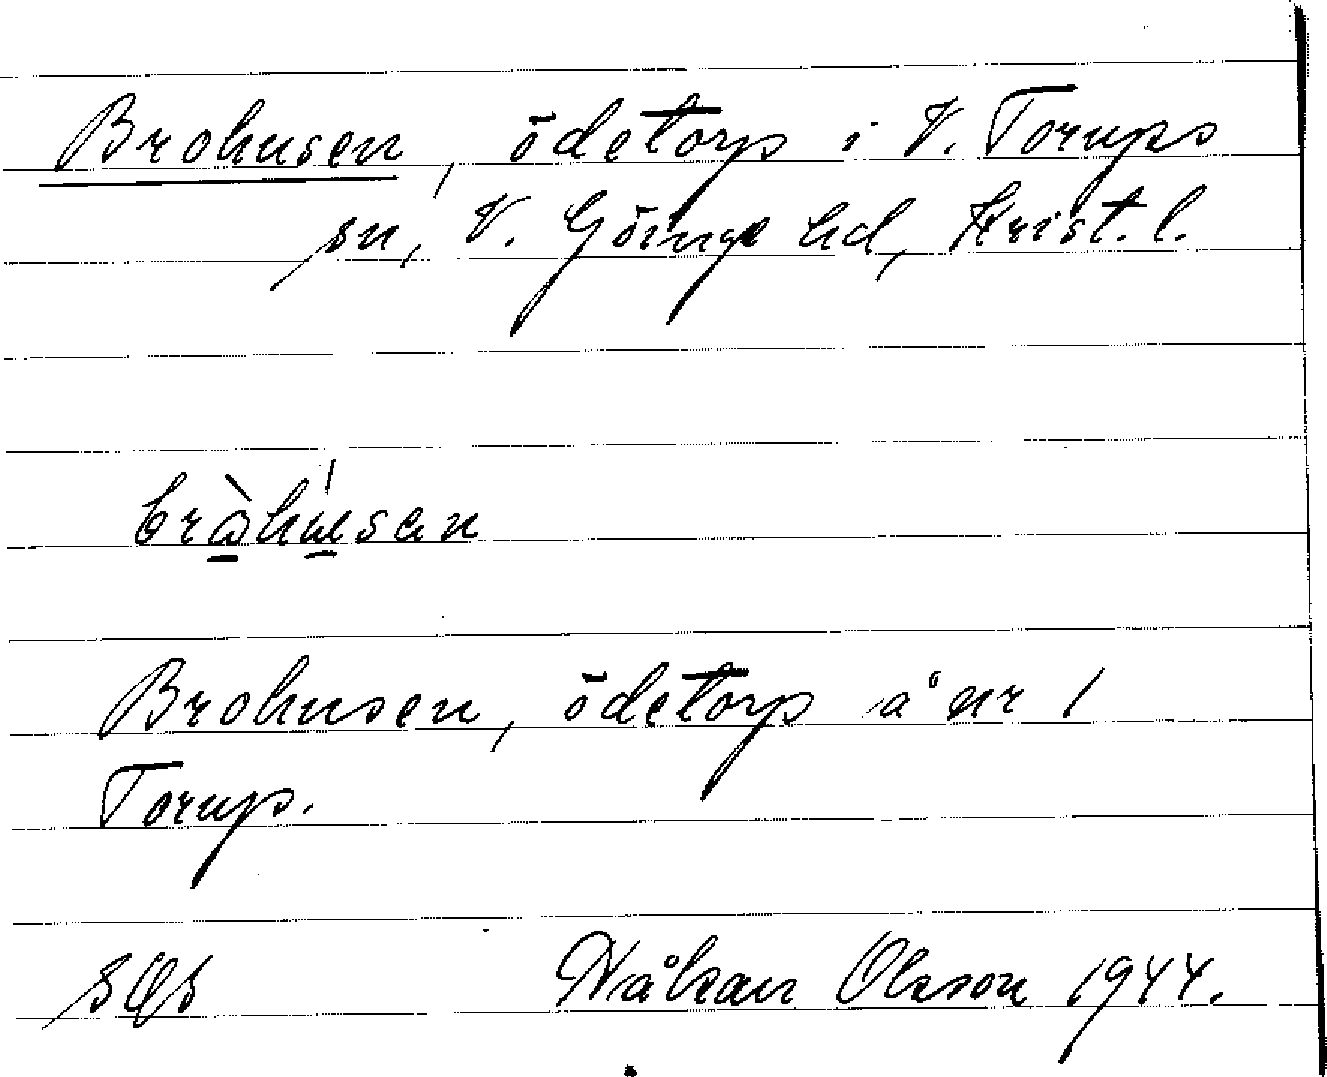 Brohusen, ödetorp i V. Torups
sn, V. Göinge hd, Krist. l.
bròhúsen
Brohusen, ödetorp å nr 1
Torup.
Håkan Olsson 1944.